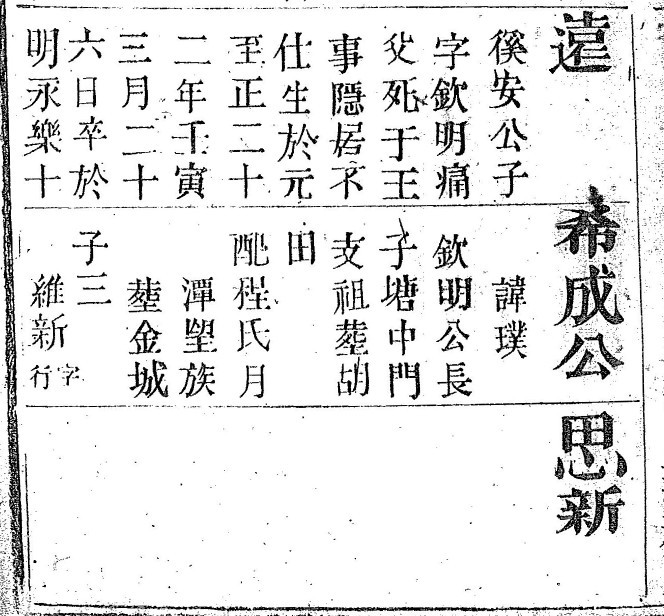 遠
徯安公子
字欽明痛
父死于王
事隱居不
仕生於元
至正二十
二年壬寅
三月二十
六日卒於
明永樂十
希成公
諱璞
欽明公長
子塘中門
支祖塟胡
田
配程氏月
潭望族
塟金城
子三
維新字行
思新